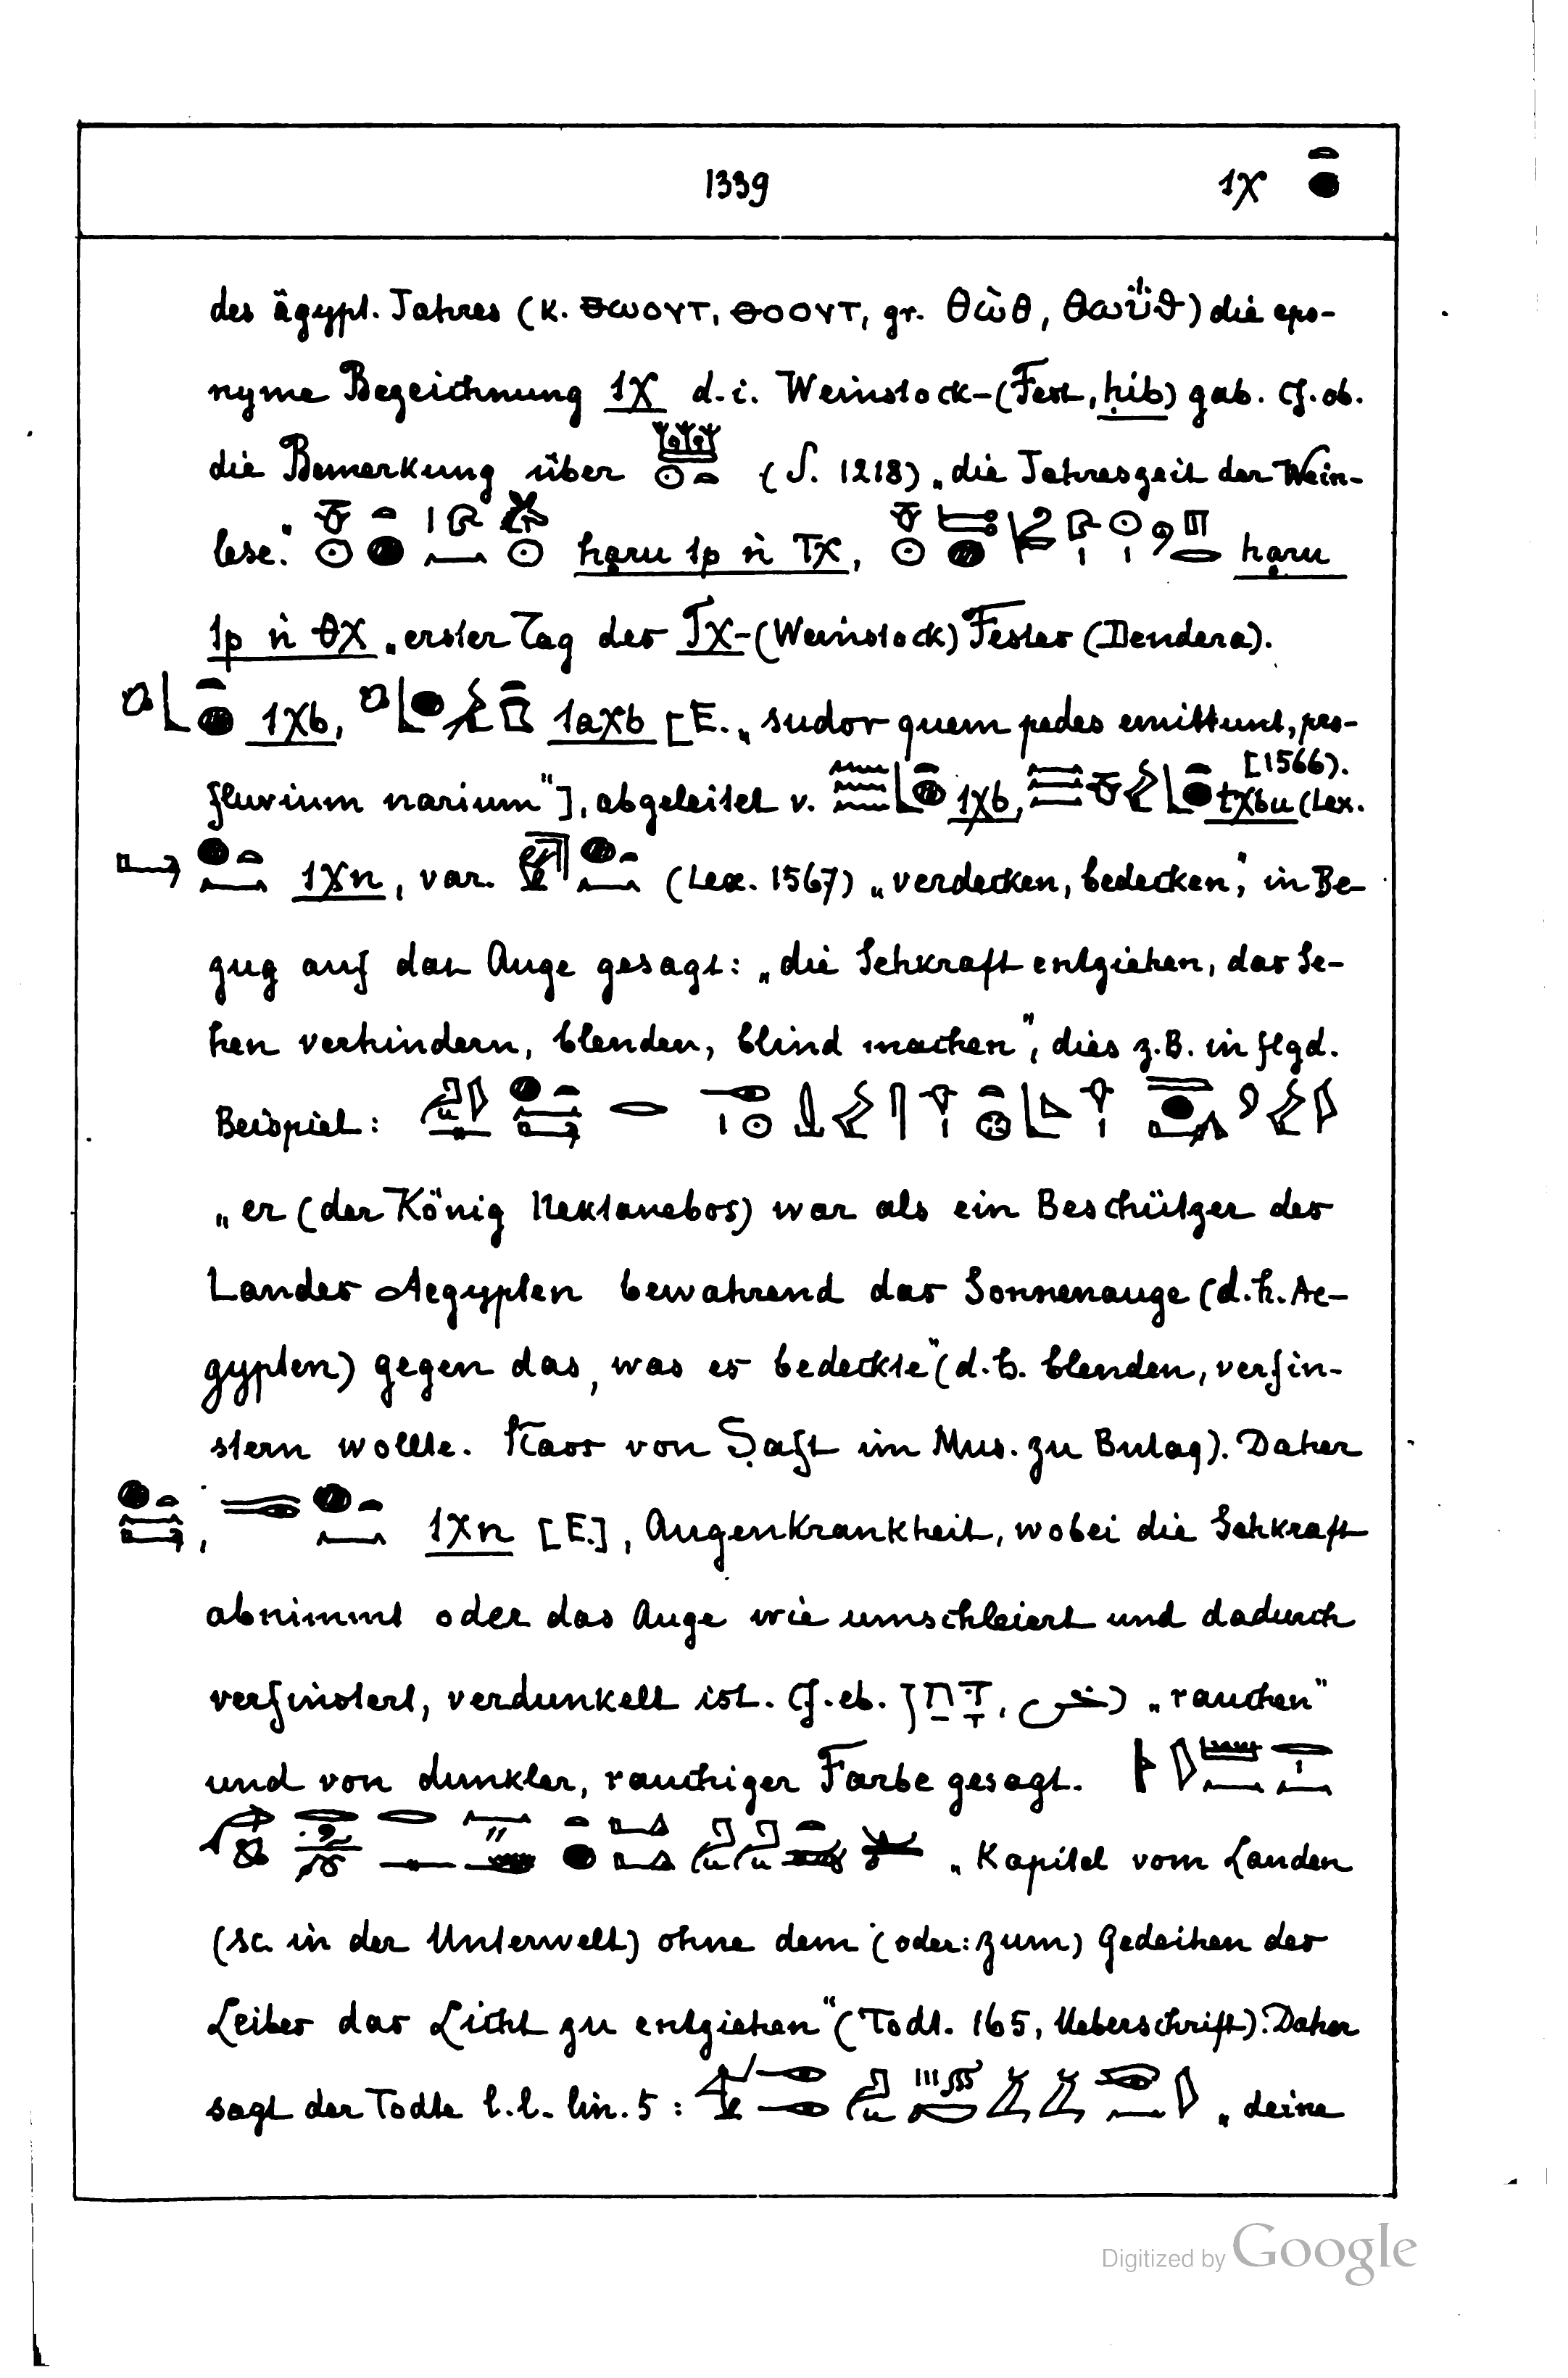 1339 tχ
des ägypt. Jahres (K. ⲑⲱⲟⲩⲧ, ⲑⲟⲟⲩⲧ, gr. θὼθ, θωΰϑ) die epo-
nyme Bezeichnung tχ d.i. Weinstock-(Fest, ḥib) gab. Cf. ob.
die Bemerkung über (S. 1218) „die Jahreszeit der Wein-
lese." haru tp ṅ Tχ, haru
tp ṅ θχ „erster Tag des Tχ-(Weinstock) Festes (Dendera).
tχb, taχb [E. „sudor quem pedes emittunt, pro-
fluvium narium"], abgeleitet v. tχb, tχbu (Lex.
[1566).
tχn, var. (Lex. 1567) „verdecken, bedecken", in Be-
zug auf das Auge gesagt: „die Sehkraft entziehen, das Se-
hen verhindern, blenden, blind machen", dies z.B. in flgd.
Beispiel:
„er (der König Nektanebos) war als ein Beschützer des
Landes Aegypten bewahrend das Sonnenauge (d.h. Ae-
gypten) gegen das, was es bedeckte" (d.h. blenden, verfin-
stern wollte. Naos von Saft im Mus. zu Bulaq). Daher
, tχn [E.], Augenkrankheit, wobei die Sehkraft
abnimmt oder das Auge wie umschleiert und dadurch
verfinstert, verdunkelt ist. Cf. eb. „rauchen"
und von dunkler, rauchiger Farbe gesagt.
„Kapitel vom Landen
(sc. in der Unterwelt) ohne dem (oder: zum) Gedeihen der
Leiber das Licht zu entziehen" (Todt. 165, Ueberschrift). Daher
sagt der Todte l.l. lin. 5 : „deine
Digitized by Google